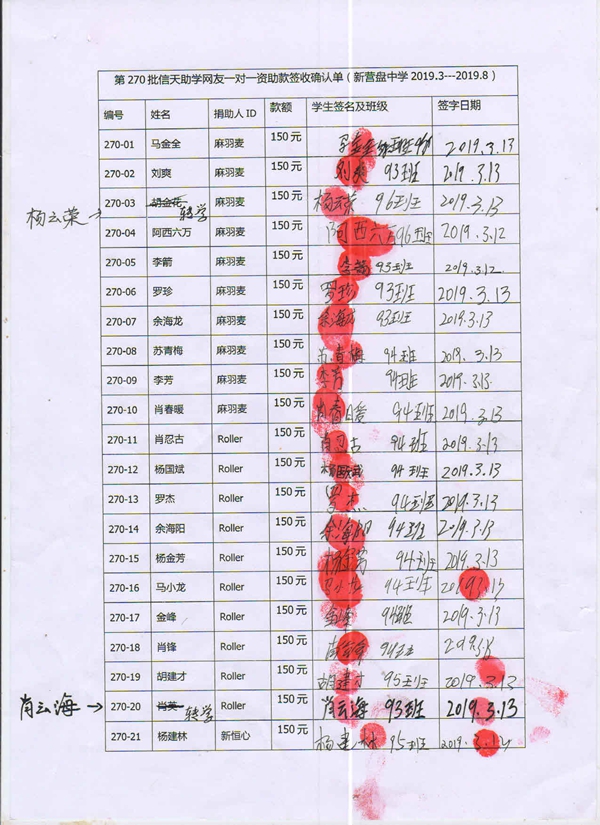 第 270 批信天助学网友一对一资助款签收确认单（新营盘中学 2019.3---2019.8）
编号 姓名 捐助人 ID 款额 学生签名及班级 签字日期
270-01 马金全 麻羽麦 150 元 2019.3.13
270-02 刘爽 麻羽麦 150 元 刘爽 93班 2019.3.13
杨云荣 → 270-03 胡金花 转学 麻羽麦 150 元 杨云荣 96班 2019.3.13
270-04 阿西六万 麻羽麦 150 元 阿西六万96班 2019.3.12
270-05 李箭 麻羽麦 150 元 李箭 95班 2019.3.12
270-06 罗珍 麻羽麦 150 元 罗珍 93班 2019.3.13
270-07 余海龙 麻羽麦 150 元 余海龙 93班 2019.3.13
270-08 苏青梅 麻羽麦 150 元 苏春梅 94班 2019.3.13
270-09 李芳 麻羽麦 150 元 李芳 94班 2019.3.13
270-10 肖春暖 麻羽麦 150 元 肖春暖 94班 2019.3.13
270-11 肖忍古 Roller 150 元 肖忍古 94班 2019.3.13
270-12 杨国斌 Roller 150 元 杨国斌 94班 2019.3.13
270-13 罗杰 Roller 150 元 罗杰 94班 2019.3.13
270-14 余海阳 Roller 150 元 余海阳 94班 2019.3.13
270-15 杨金芳 Roller 150 元 杨金芳 94班 2019.3.13
270-16 马小龙 Roller 150 元 马小龙 94班 2019.3.13
270-17 金峰 Roller 150 元 金峰 94班 2019.3.13
270-18 肖锋 Roller 150 元 94班
270-19 胡建才 Roller 150 元 胡建才 95班 2019.3.13
肖云海 → 270-20 肖英 转学 Roller 150 元 肖云海 93班 2019.3.13
270-21 杨建林 新恒心 150 元 杨建林 95班 2019.3.12